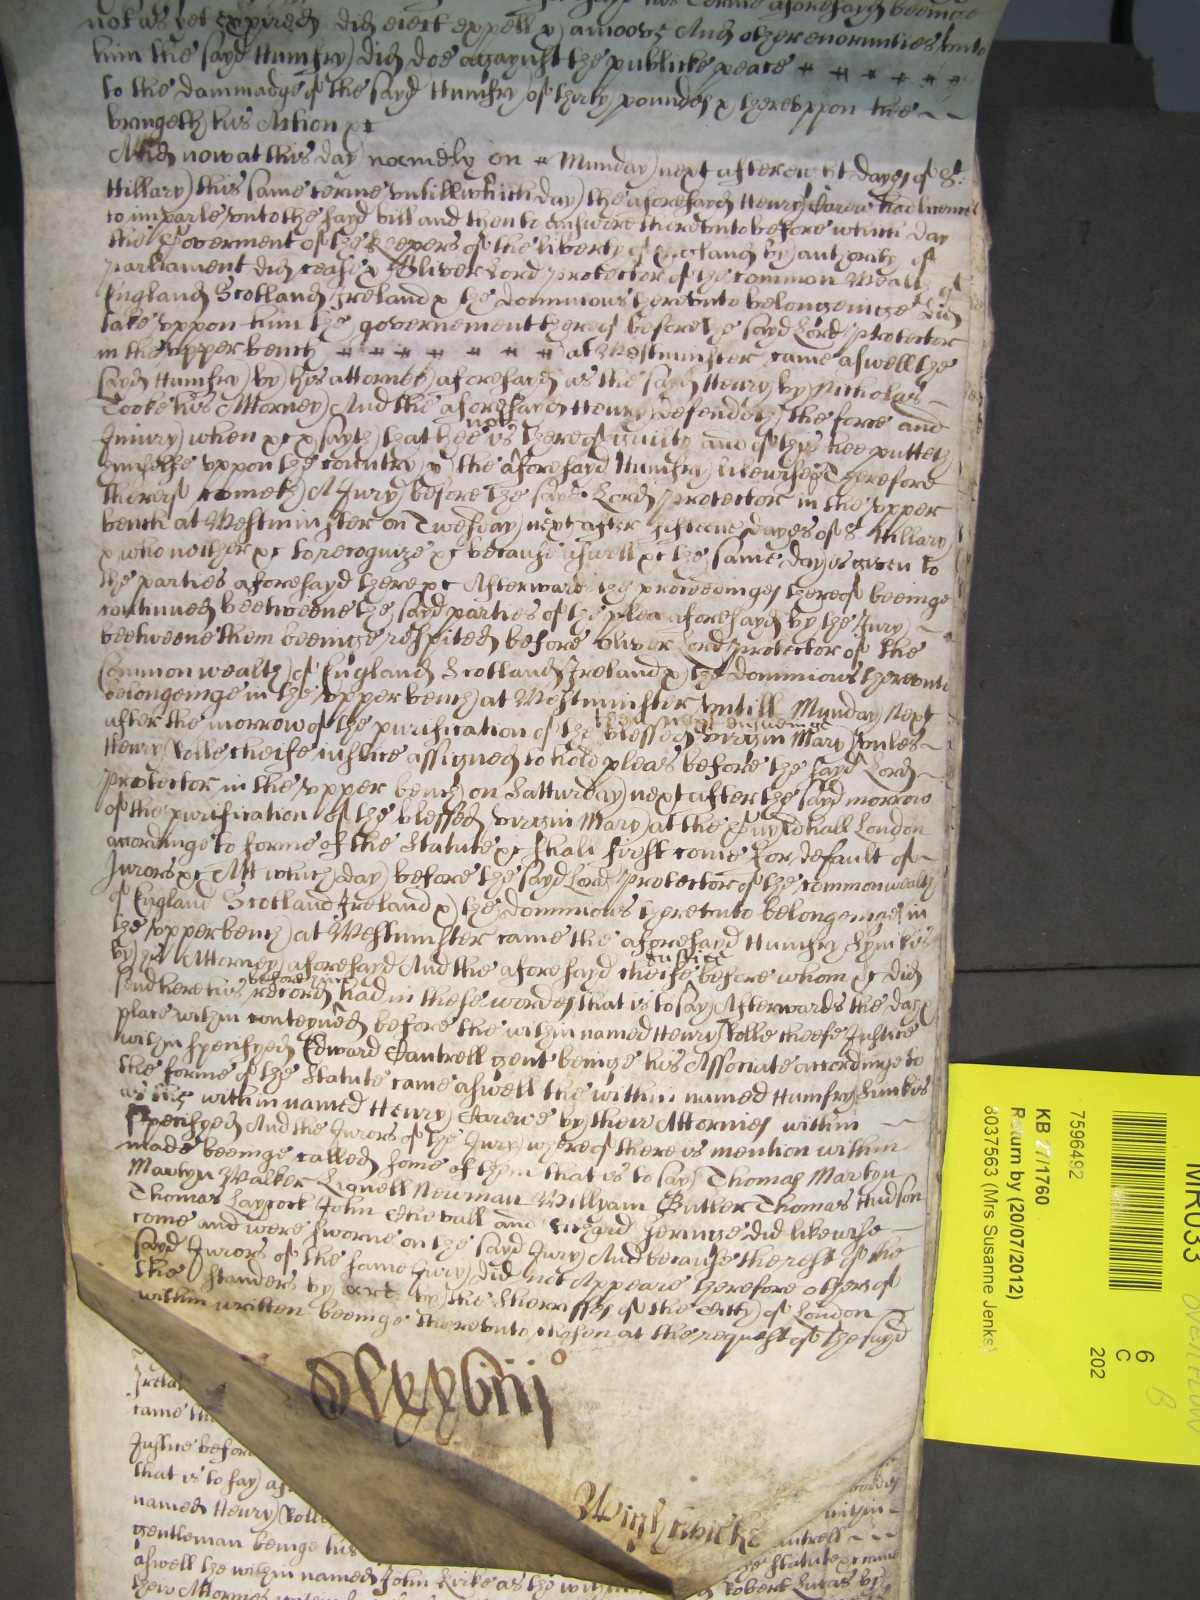 not as yet expired did eject expell & amoove And other enormities unto
him the sayd Humfry did doe agaynst the publicke peace
to the dammadge of the sayd Humfry of thirty poundes & thereuppon hee
bringeth his Action &c
And now at this day namely on Munday next after eight dayes of St.
Hillary this same terme untill which day the aforesayd Henry Carew had licence
to imparle unto the sayd bill and then to answere thereunto before which day
the Goverment of the Keepers of the liberty of England by authority of
parliament did cease & Oliver Lord Protector of the common Wealth of
England Scotland Ireland & the dominions thereunto belongeinge did
take uppon him the governement thereof before the sayd Lord Protector
in the upper bench at Westminster came aswell the
sayd Humfry by his attorney aforesayd as the sayd Henry by Nicholas
Cooke his Attorney And the aforesayd Henry defendeth the force and
Injury when &c & sayth that hee is not thereof guilty and of this hee putteth
himselfe uppon the country & the aforesayd Humfry likewise Therefore
thereof cometh A Jury before the sayd Lord Protector in the upper
bench at Westminster on Twesday next after fifteene dayes of St Hillary
& who neither &c to recognize &c because aswell &c the same day is given to
the parties aforesayd there &c Afterward the proceedinges thereof beeinge
continued beetweene the sayd parties of the plea aforesayd by the Jury
beetweene them beeinge respited before Oliver Lord Protector of the
Common wealth of England Scotland Ireland & the dominions thereunto
belongeinge in the upper bench at Westminster untill Munday Next
after the morrow of the purification of the blessed virgin Mary unles
Henry Rolle cheife justice assigned to hold pleas before the sayd Lord
Protector in the upper bench on Satturday next after the sayd morrow
of the purification of the blessed virgin Mary at the Guyldhall London
accordinge to forme of the Statute &c shall first come for default of
Jurors &c Att which day before the sayd Lord Protector of the commonwealth
of England Scotland Ireland & the dominions thereunto belongeinge in
the upper bench at Westminster came the aforesayd Humfry
by his Attorney aforesayd And the aforesayd cheife Justice before whom &c did
send here his record before him had in these wordes that is to say Afterwards the day &
place within conteyned before the within named Henry Rolle cheefe Justice
within specifyed Edward Cantrell gent beinge his Associate accordinge to
the forme of the Statute came aswell the within named Humfry
as the within named Henry Carewe by their Attornies within
specifyed And the Jurors of the Jury whereof there is mention within
made beeinge called some of them that is to say Thomas Martyn
Martyn Walker Newman Willyam Butler Thomas Hudson
Thomas Laycock John and Richard did likewise
come and were sworne on the sayd Jury And because the rest of the
sayd Jurors of the same Jury did not Appeare therefore others of
the standers by &c by the Sherriffes of the Citty of London
within written beeinge thereunto chosen at the request of the sayd
came the
Justice before
that is to say
named Henry Rolle within
gentleman beinge his Cantrell
the Statute &c came
aswell the within named John as the within Robert Lucas by
their Attornies
MR033
6
C
202
7596492
KB 27/1760
Return by (20/07/2012)
8037563 (Mrs Susanne Jenks)